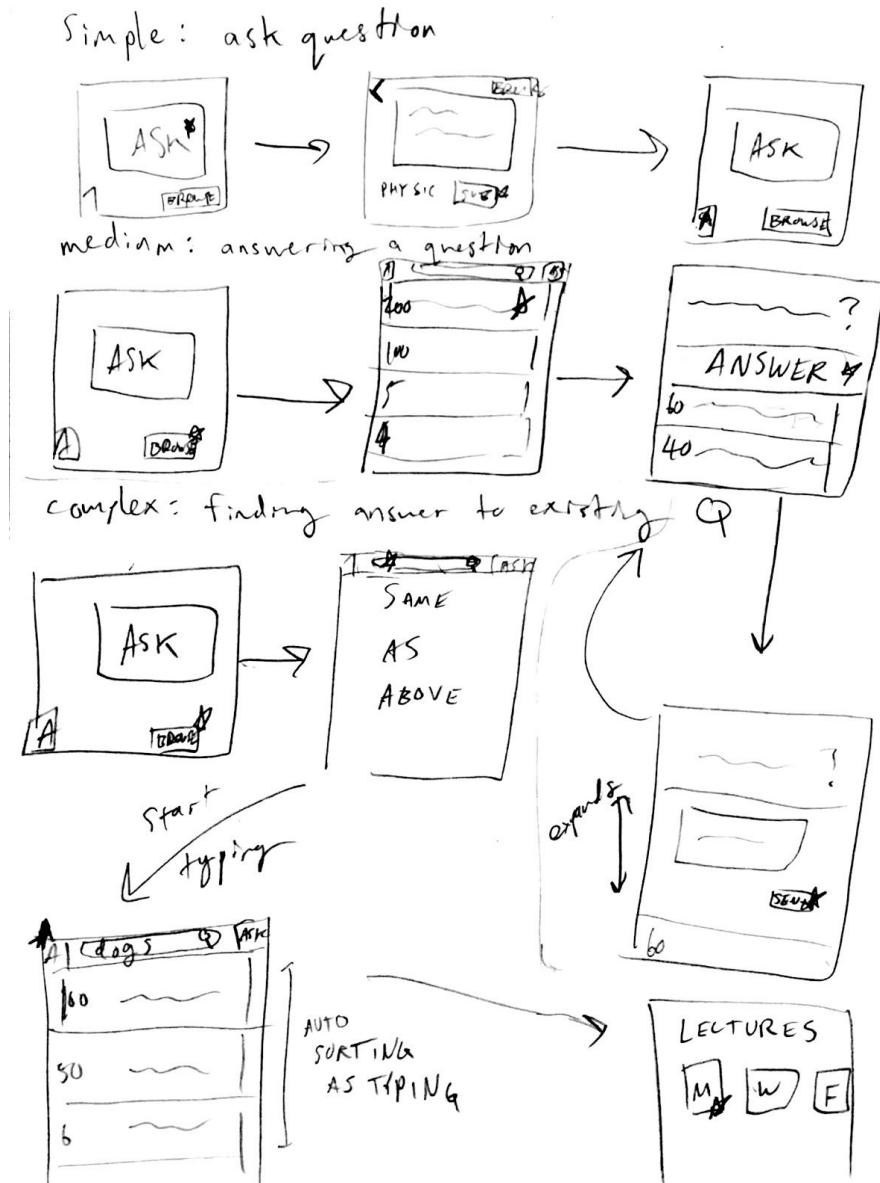 Simple: ask question
ASK
BROWSE
PHYSIC
ASK
A
BROWSE
medium: answering a question
ASK
A
BROWSE
A
Q
200
100
5
?
ANSWER
60
40
complex: finding answer to existing Q
ASK
A
BROWSE
Q ASK
SAME
AS
ABOVE
Start
typing
expands
?
SEND
60
A dogs Q ASK
100
50
6
AUTO
SORTING
AS TYPING
LECTURES
M W F